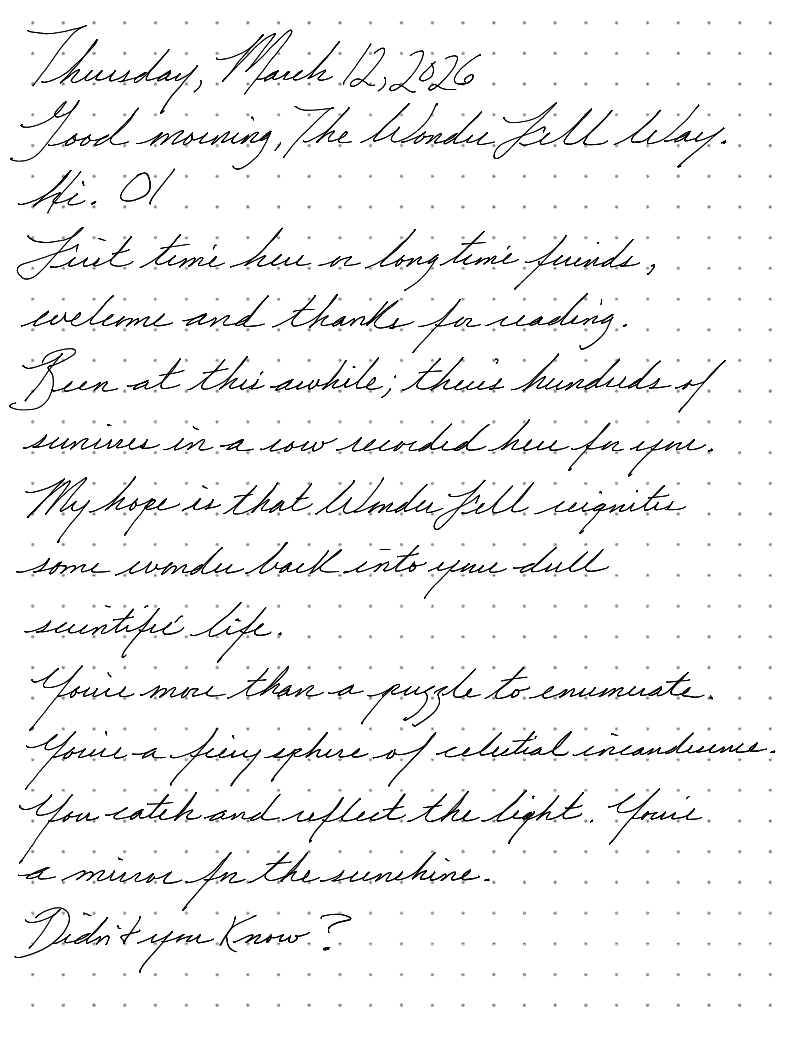 Thursday, March 12, 2026
Good morning, The Wonder Fell Way.
Hi. 01
First time here or longtime friends,
welcome and thanks for reading.
Been at this awhile; there's hundreds of
sunrises in a row recorded here for you.
My hope is that Wonder Fell reignites
some wonder back into your dull
scientific life.
You're more than a puzzle to enumerate.
You're a fiery sphere of celestial incandescence.
You catch and reflect the light. You're
a mirror for the sunshine.
Didn't you know?